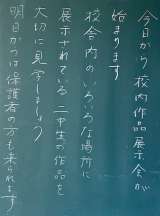 今日から 校内作品展示会が
始まります
校舎内のいろいろな場所に
展示されている 二中生の作品を
大切に見ましょう
明日からは保護者の方も来られます